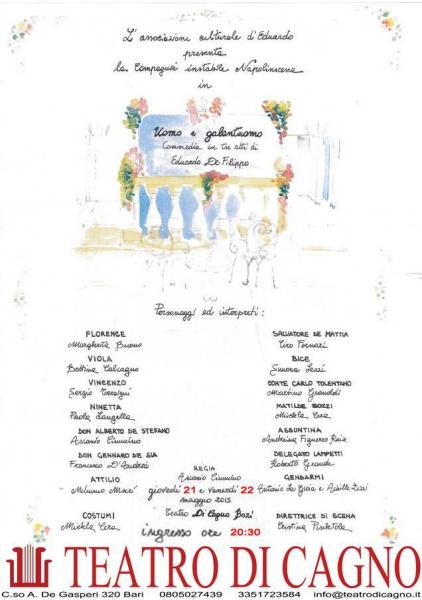 L'associazione culturale di Eduardo
presenta
la Compagnia instabile Napolinscena
in
Uomo e galantuomo
Commedia in tre atti di
Eduardo De Filippo
Personaggi ed interpreti:
FLORENCE
Margherita Buono
VIOLA
Bettina Calcagno
VINCENZO
Sergio
NINETTA
Paola Langella
DON ALBERTO DE STEFANO
Ascanio Cimmino
DON GENNARO DE SIA
Francesco D'Andrea
ATTILIO
Mimmo
COSTUMI
Michela Cera
SALVATORE DE MATTIA
Ciro Fornari
BICE
Simona
CONTE CARLO TOLENTANO
Martino
MATILDE BOZZI
Michela Cera
ASSUNTINA
Andreina Figueres
DELEGATO LAMPETTI
Roberto Grande
GENDARMI
Antonio La Gioia e Achille
DIRETTRICE DI SCENA
Cristina
REGIA
Ascanio Cimmino
giovedì 21 e venerdì 22
maggio 2015
Teatro Di Cagno Bari
ingresso ore 20:30
TEATRO DI CAGNO
C.so A. De Gasperi 320 Bari 0805027439 3351723584 info@teatrodicagno.it